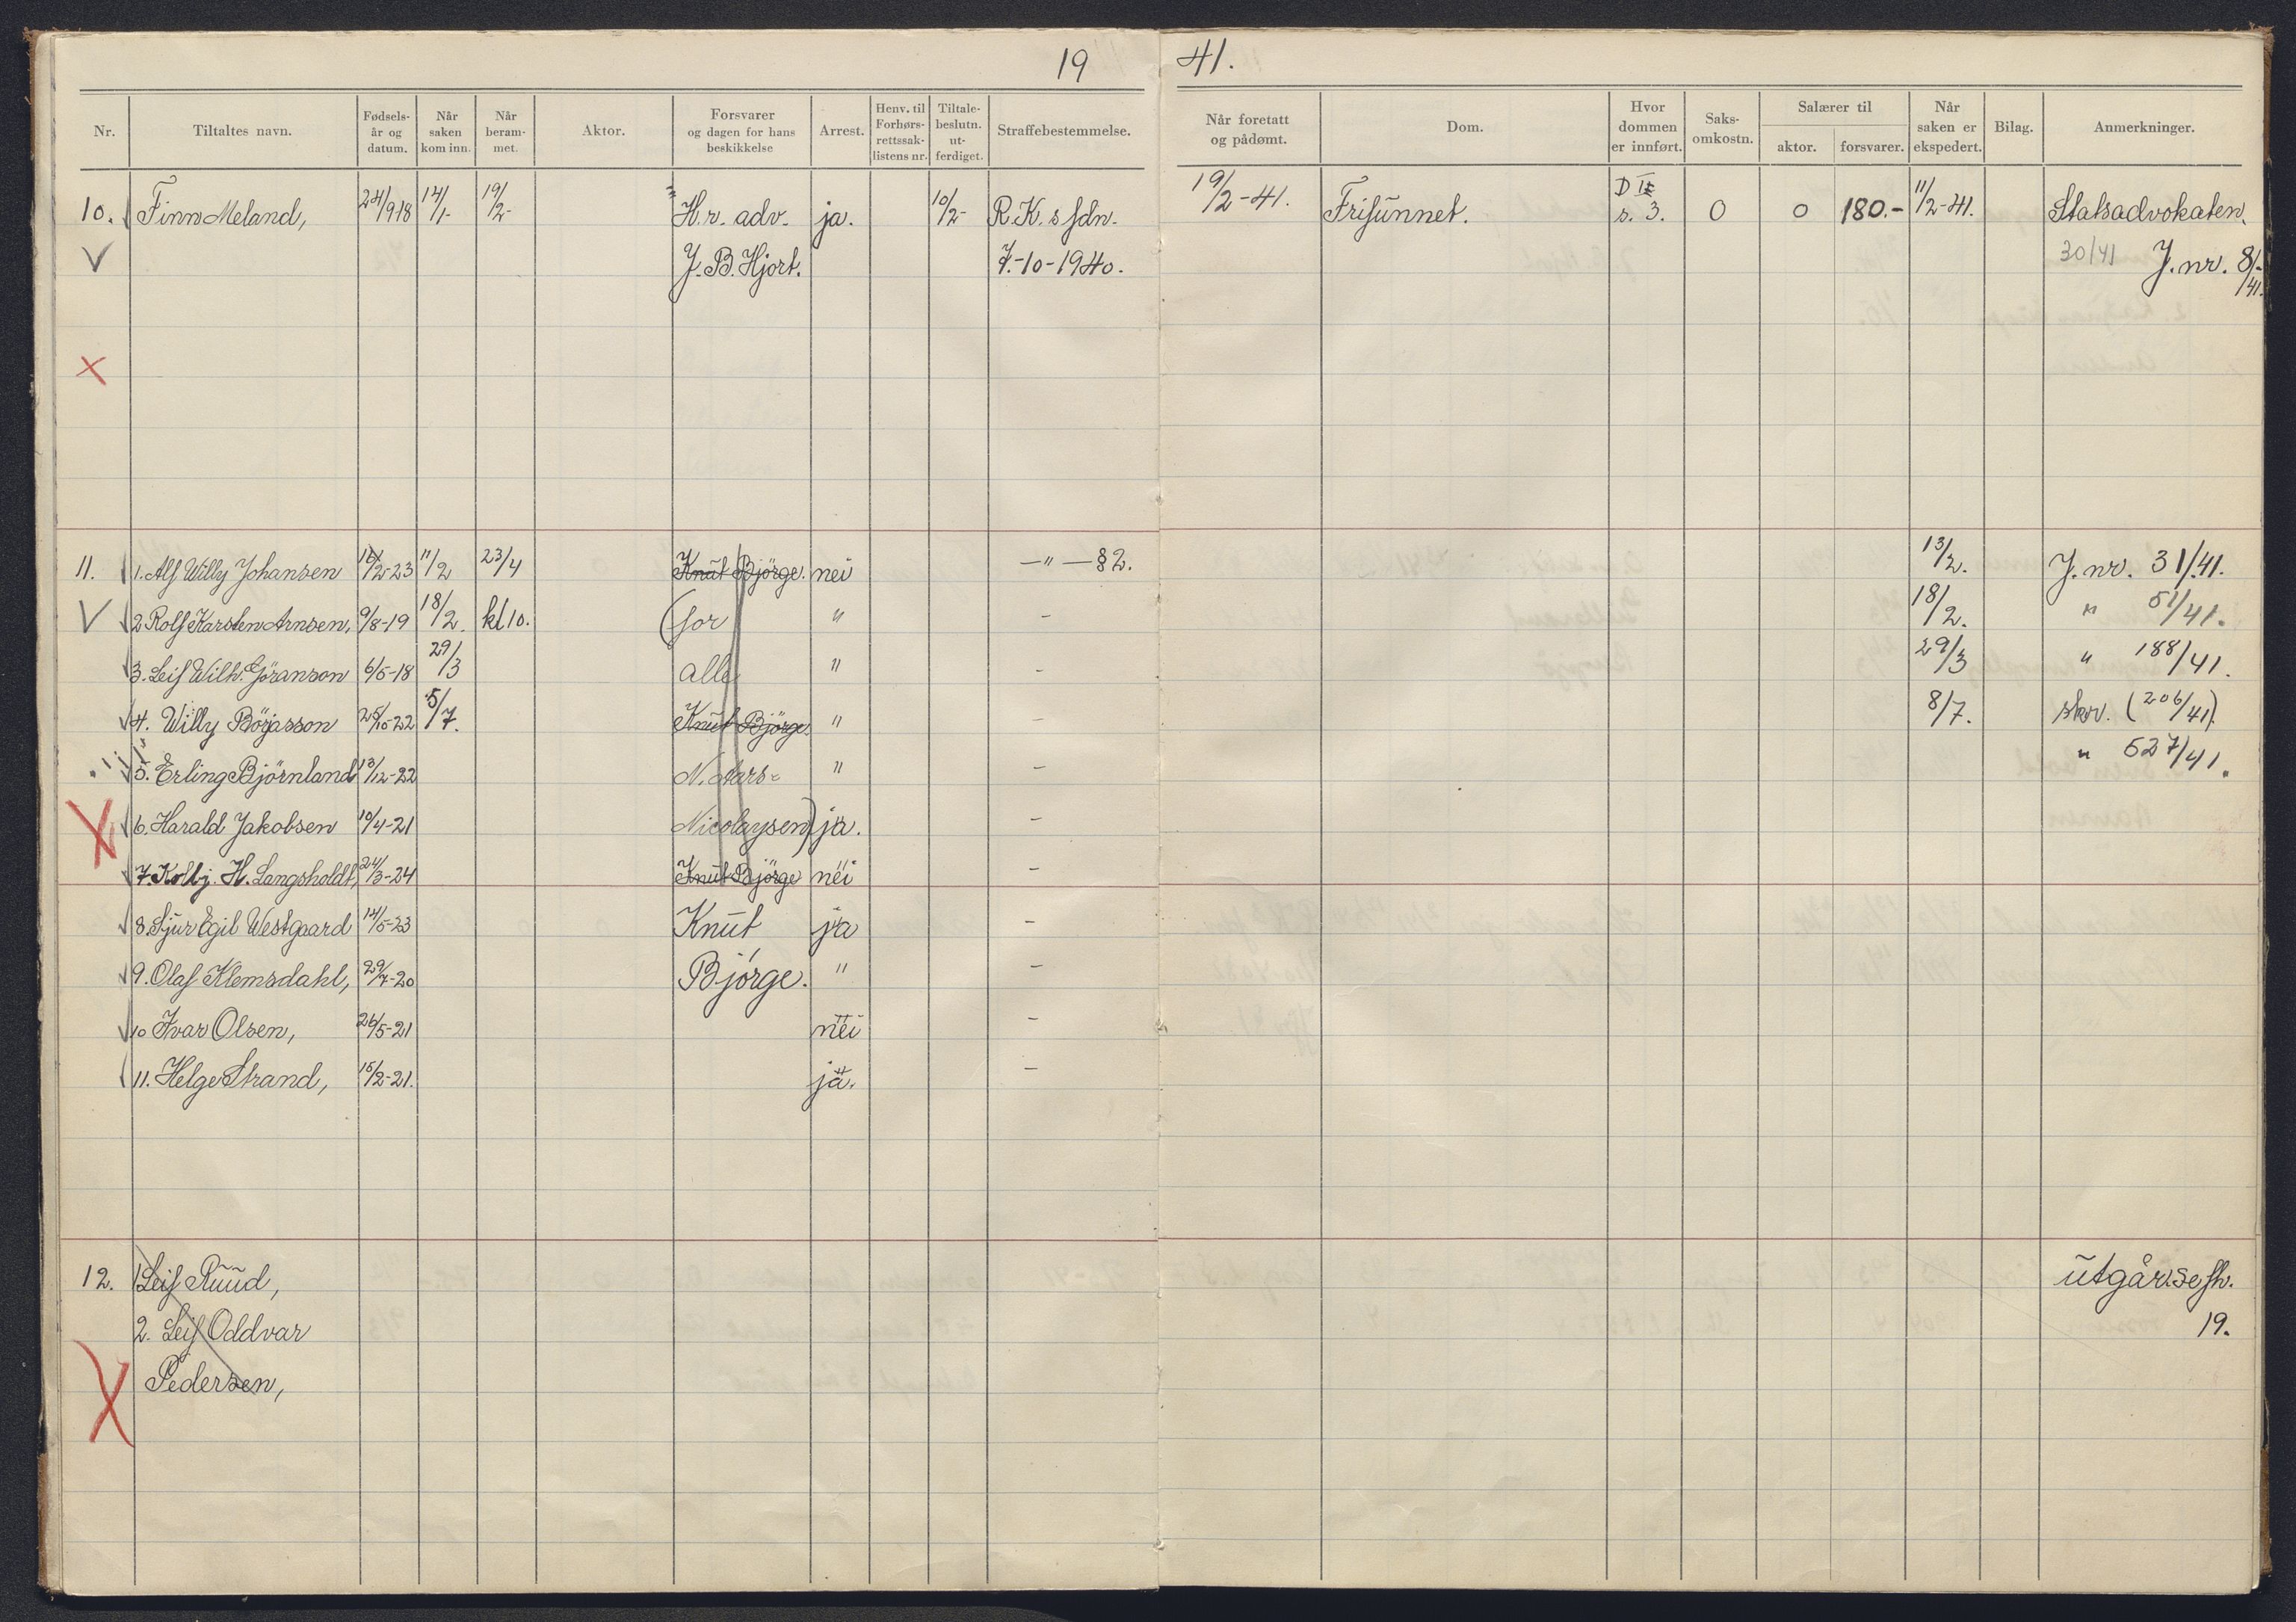 19 41.
Nr. Tiltaltes navn. Fødsels- år og datum. Når saken kom inn. Når beram- met. Aktor. Forsvarer og dagen for hans beskikkelse Arrest. Henv. til Forhørs- rettssak- listens nr. Tiltale- beslutn. ut- ferdiget. Straffebestemmelse. Når foretatt og pådømt. Dom. Hvor dommen er innført. Saks- omkostn. Salærer til aktor. forsvarer. Når saken er ekspedert. Bilag. Anmerkninger.
10. Finn Meland, 24/9-18 14/1- 19/2- H.r. adv. ja. 10/2- R.K.s fdn. 19/2-41. Frifunnet. D II s. 3. 0 0 180.- 11/2-41. Statsadvokaten.
J.B. Hjort. 7.-10-1940. 30/41 J. nr. 8/- /41.
11. 1. Alf Willy Johansen 2-23 11/2 23/4 Knut Bjørge. nei -"- §2. 13/2. J. nr. 31/41.
2 Rolf Karsten Arnsen, 9/8-19 18/2. kl 10. (for " - 18/2. " 51/41.
3. Leif Wilh. Göranson 6/5-18 29/3 alle " - 29/3 " 188/41.
4. Willy Börjasson 25/10-22 5/7. Knut Bjørge. " - 8/7. skr. (206/41).
5. Erling Bjørnland 13/12-22 N. Aars- " - " 527/41.
6. Harald Jakobsen 10/4-21 Nicolaysen) ja. -
7. Kolbj. H. Langsholdt, 24/3-24 Knut Bjørge nei -
8. Sjur Egil Westgaard 14/5-23 Knut ja -
9. Olaf Klemsdahl, 29/7-20 Bjørge. " -
10 Ivar Olsen, 26/5-21 nei -
11. Helge Strand, 15/2-21. ja. -
12. 1 Leif Ruud, utgår. se sk.
2. Leif Oddvar 19.
Pedersen,